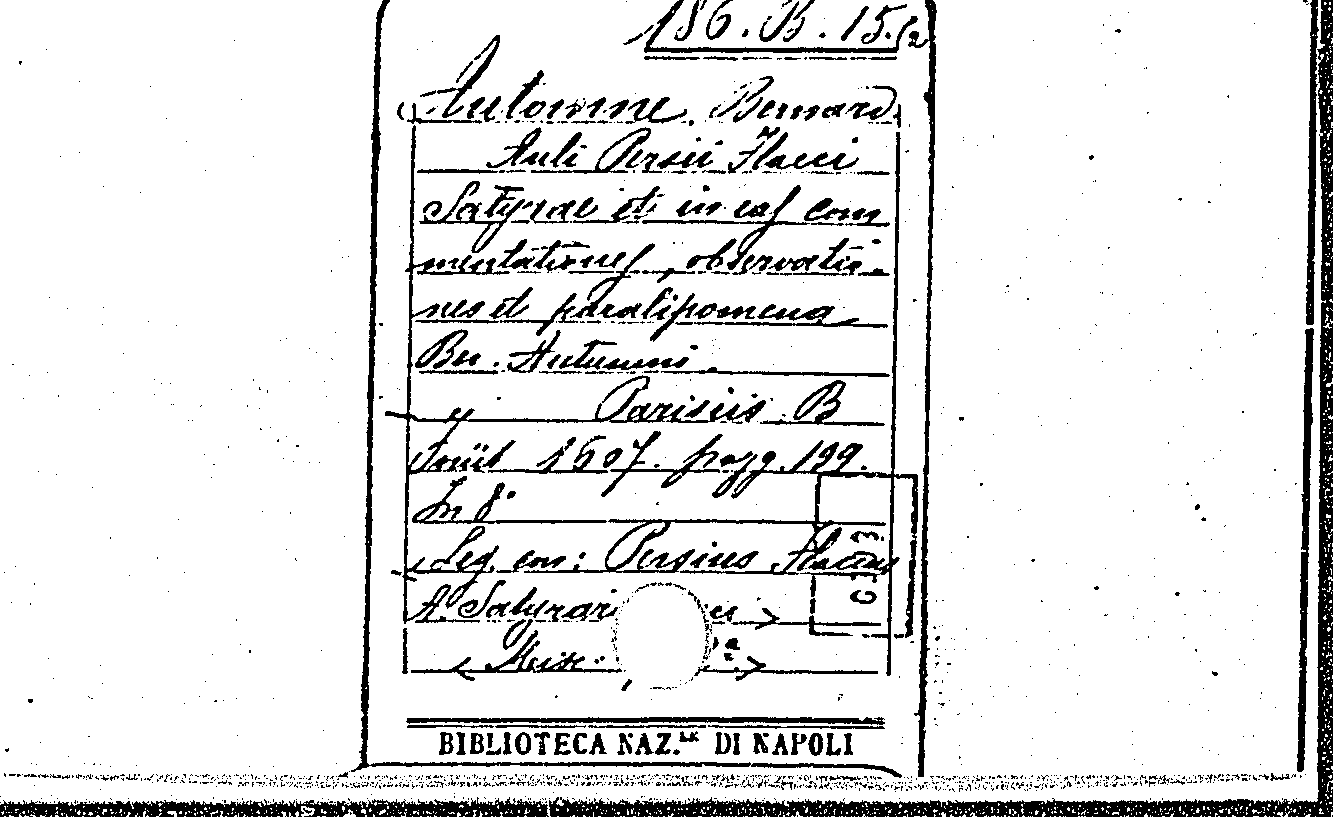 186. B. 15.(2
Automne, Bernard.
Auli Persii Flacci
Satyrae et in eas com
mentationes, observatio-
nes et paralipomena
Ber. Autumni.
Parisiis B
1607. pagg. 199.
In 8°
Leg. con: Persius Flaccus
A.
<
BIBLIOTECA NAZ.LE DI NAPOLI